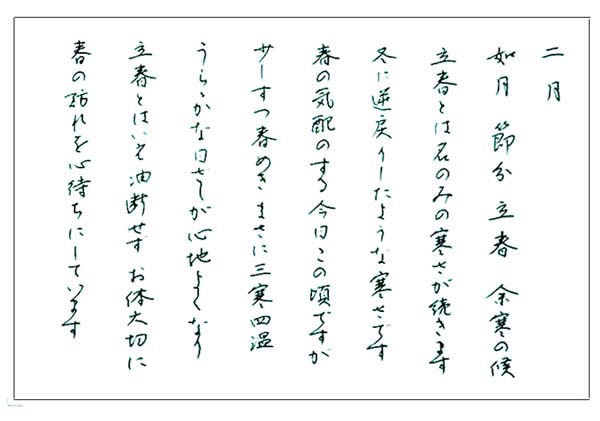 二月
如月 節分 立春 余寒の候
立春とは名のみの寒さが続きます
冬に逆戻りしたような寒さです
春の気配のする今日この頃ですが
少しずつ春めき まさに三寒四温
うららかな日ざしが心地よくなり
立春とはいえ油断せず お体大切に
春の訪れを心待ちにしています